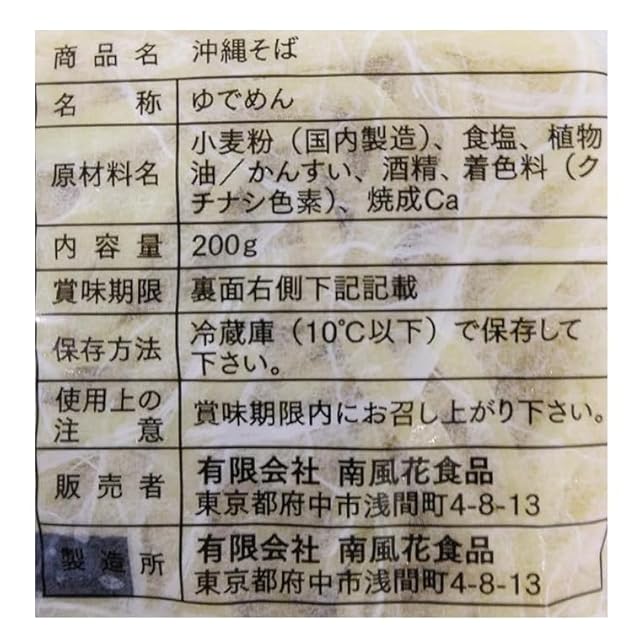 商品名 沖縄そば
名称 ゆでめん
原材料名 小麦粉（国内製造）、食塩、植物
油／かんすい、酒精、着色料（ク
チナシ色素）、焼成Ca
内容量 200g
賞味期限 裏面右側下記記載
保存方法 冷蔵庫（10℃以下）で保存して
下さい。
使用上の
注意 賞味期限内にお召し上がり下さい。
販売者 有限会社 南風花食品
東京都府中市浅間町4-8-13
製造所 有限会社 南風花食品
東京都府中市浅間町4-8-13